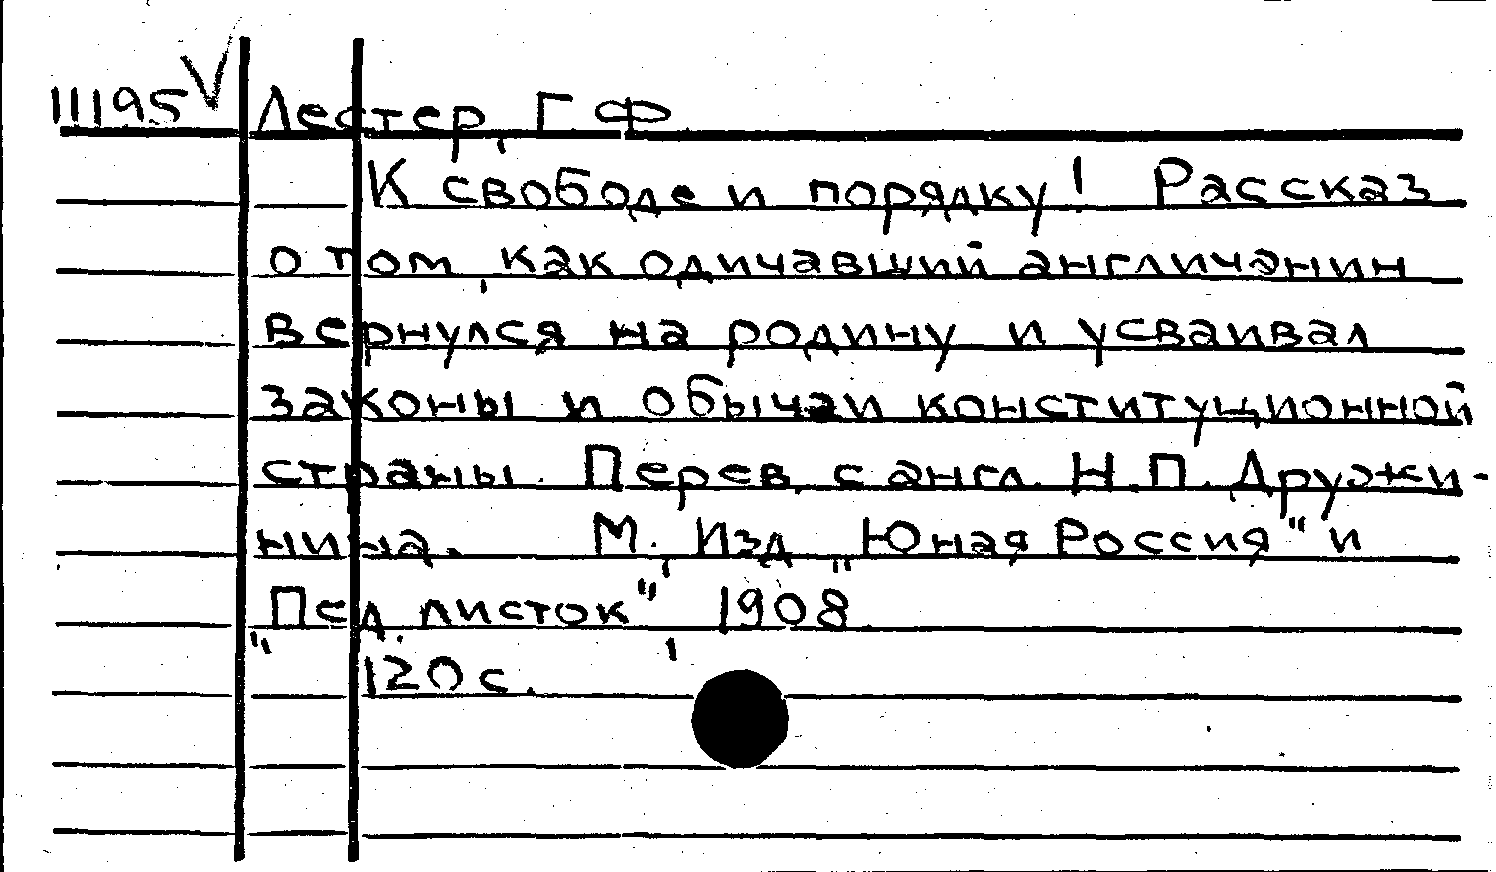 11195 Лестер, Г. Ф.
К свободе и порядку! Рассказ
о том, как одичавший англичанин
вернулся на родину и усваивал
законы и обычаи конституционной
страны. Перев. с англ. Н. П. Дружи-
нина. М. Изд. „Юная Россия" и
„Пед. листок", 1908.
120 с.